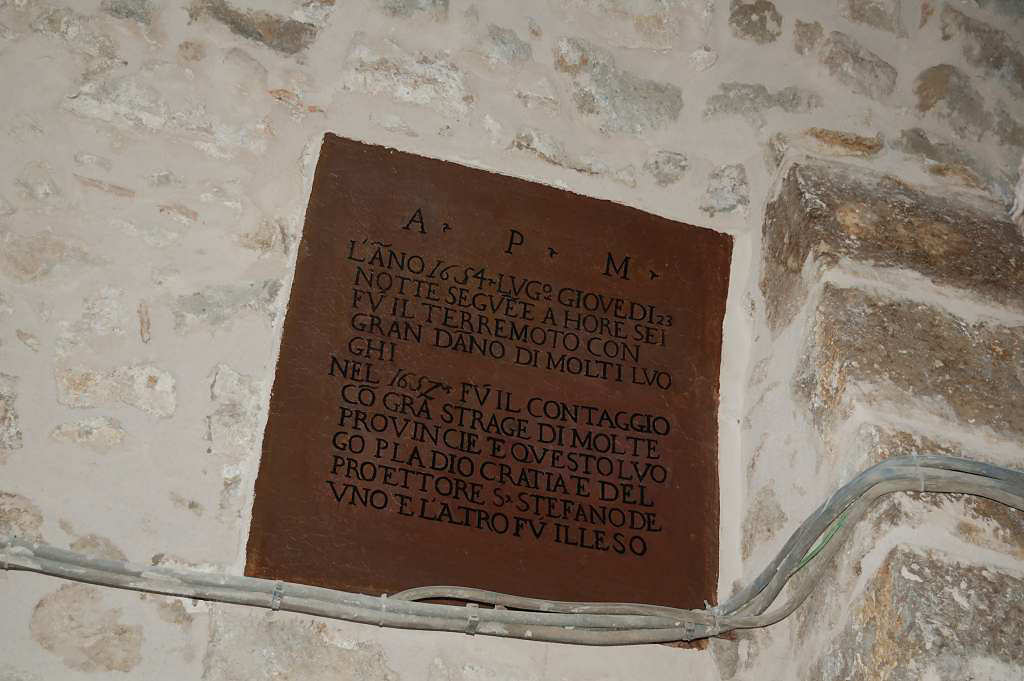 A · P · M ·
L'AÑO 1654 · LVGº GIOVEDI 23
NOTTE SEGVẼE A HORE SEI
FV́ IL TERREMOTO CON
GRAN DAÑO DI MOLTI LVO
GHI
NEL 1657 · FV́ IL CONTAGGIO
CÕ GRÃ STRAGE DI MOLTE
PROVINCIE E QVESTO LVO
GO P LA DIO GRATIA E DEL
PROTETTORE S· STEFANO DE
VNO E L'ATRO FV́ ILLESO